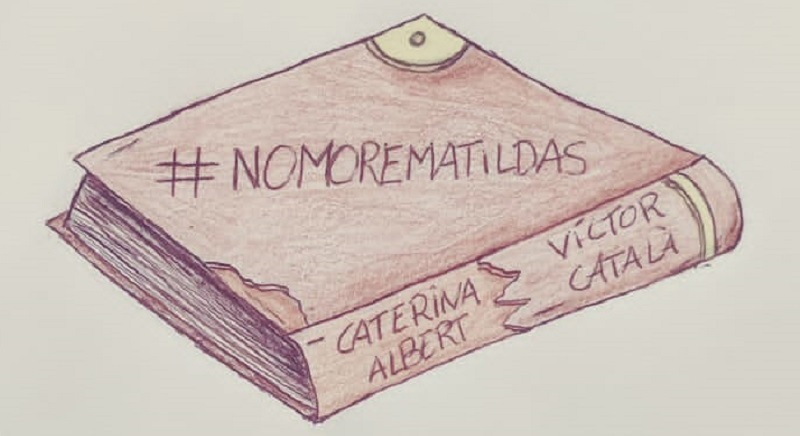 #NOMOREMATILDAS
CATERINA
ALBERT
VÍCTOR
CATALÀ